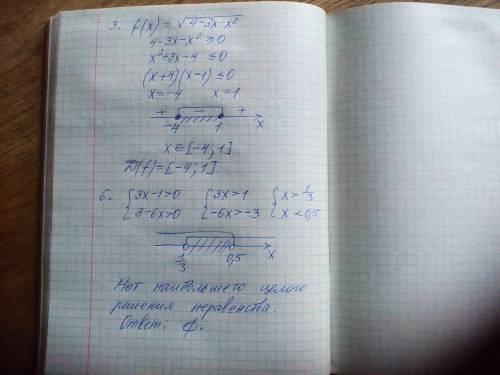 3. f(x) = √4-3x-x²
4-3x-x²≥0
x²+3x-4 ≤0
(x+4)(x-1)≤0
x=-4 x=1
+ - +
-4 1 x
x∈[-4;1]
D(f)=[-4;1]
6. {3x-1>0 {3x>1 {x>1/3
{3-6x>0 {-6x>-3 {x<0,5
1/3 0,5 x
Нет наибольшего целого
решения неравенства.
Ответ: ∅.